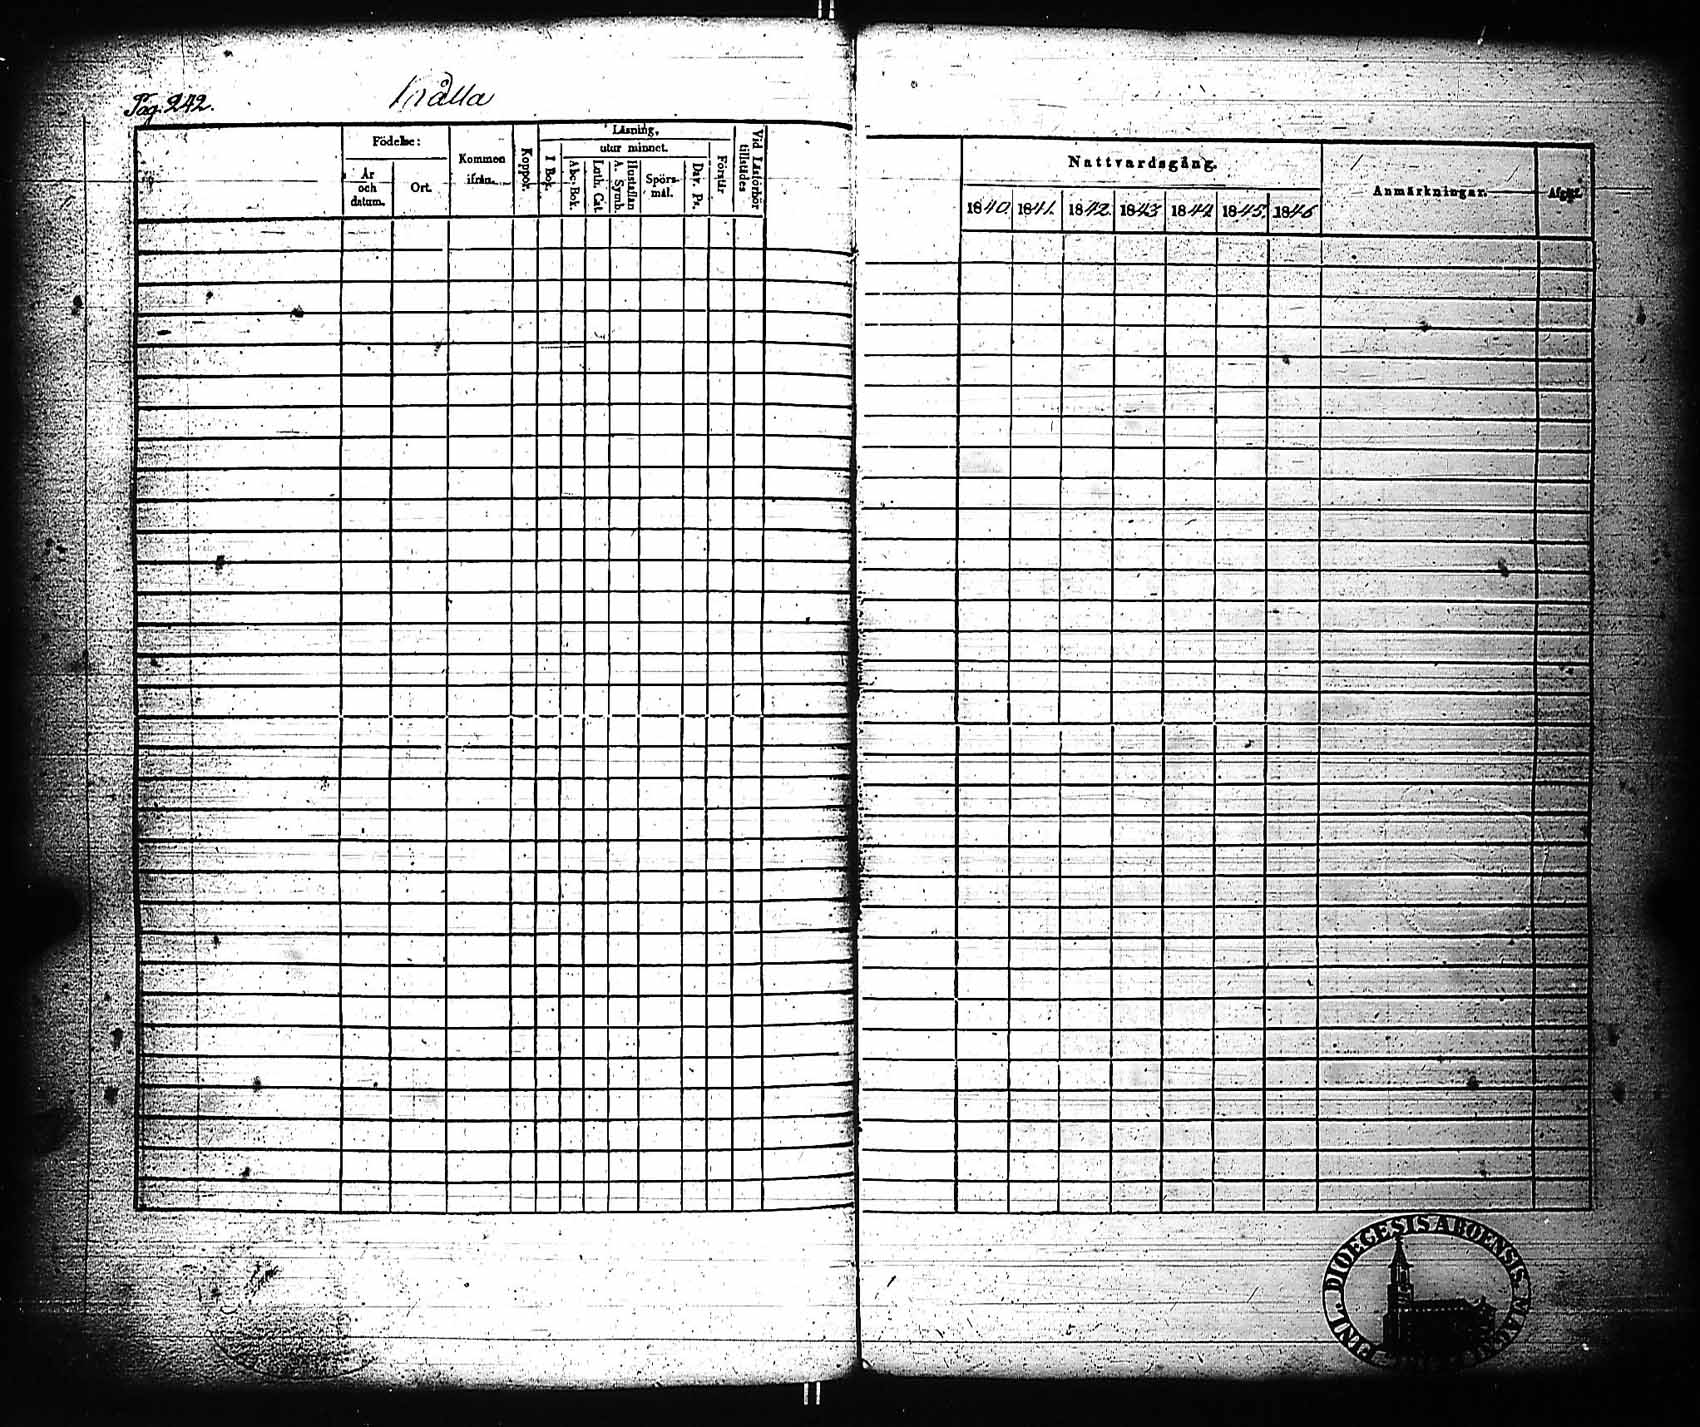 Pag. 242.
Födelse:
År
och
datum.
Ort.
Kommen
ifrån.
Koppor.
Läsning,
utur minnet.
I Bok.
Abc-Bok.
Luth. Cat.
Hustaflan
A. Symb.
Spörs-
mål.
Dav. Ps.
Förstår
Vid Läsförhör
tillstädes
Nattvardsgång.
1840. 1841. 1842. 1843 1844 1845. 1846
Anmärkningar.
Afgått.
FINL. DIOECESIS ABOENSIS